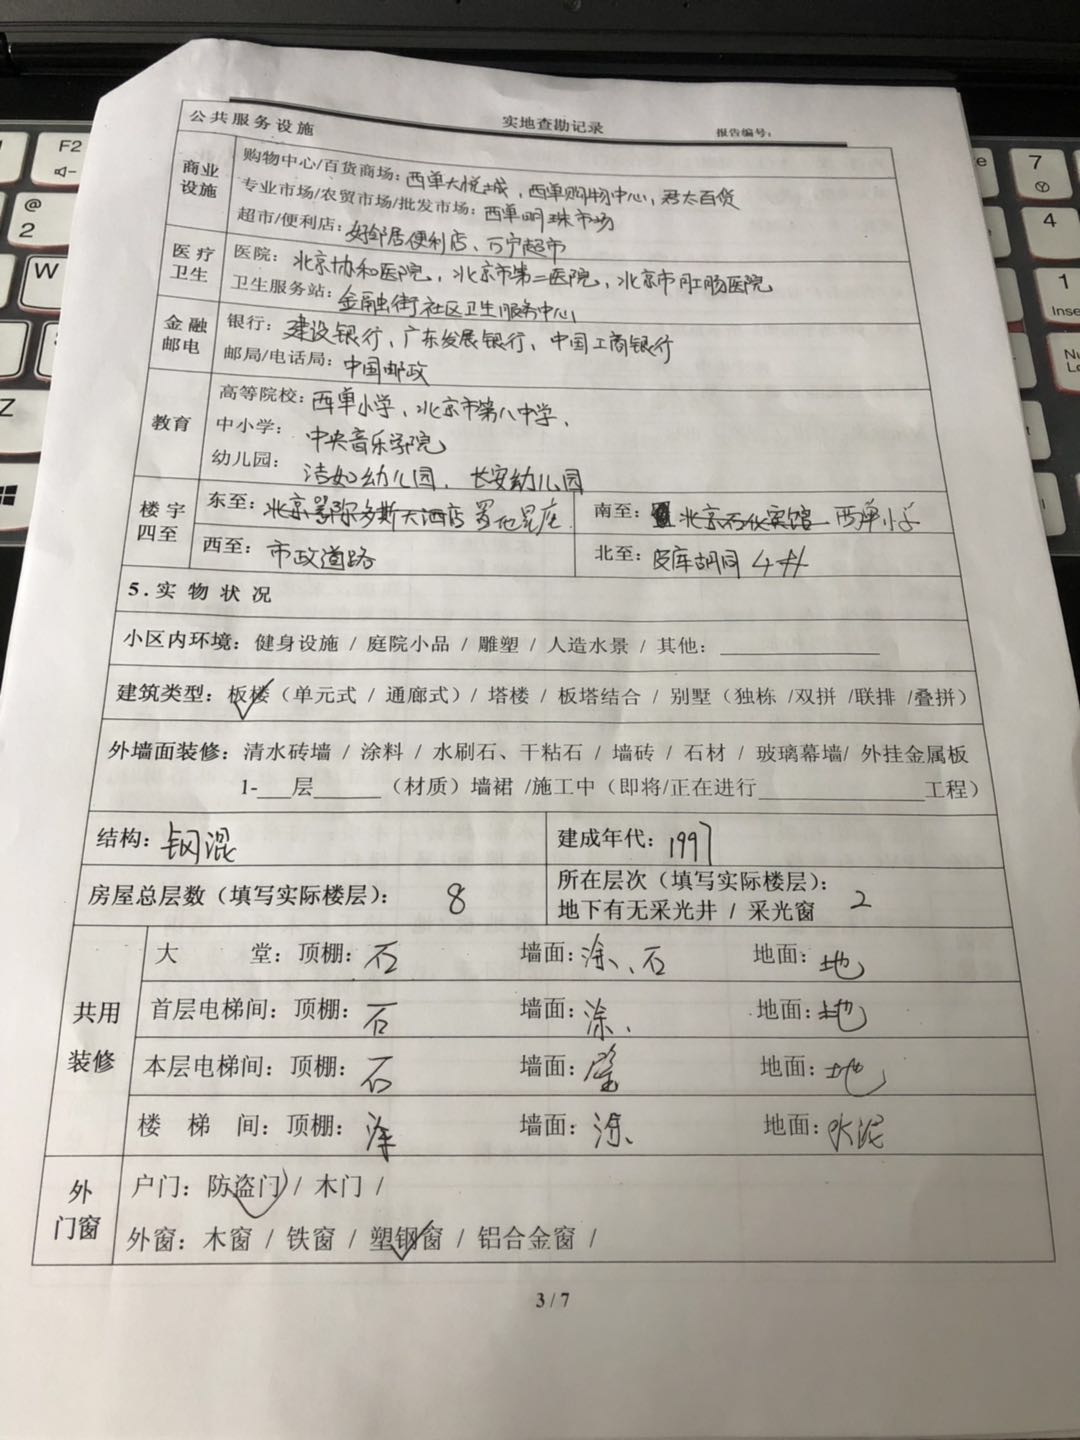 实地查勘记录
报告编号:
公共服务设施
商业设施
购物中心/百货商场: 西单大悦城, 西单购物中心, 君太百货
专业市场/农贸市场/批发市场: 西单明珠市场
超市/便利店: 好邻居便利店、万宁超市
医疗卫生
医院: 北京协和医院, 北京市第二医院, 北京市肛肠医院
卫生服务站: 金融街社区卫生服务中心
金融邮电
银行: 建设银行、广东发展银行、中国工商银行
邮局/电话局: 中国邮政
教育
高等院校: 西单小学、北京市第八中学、
中小学: 中央音乐学院
幼儿园: 洁如幼儿园、长安幼儿园
楼宇四至
东至: 北京鄂尔多斯大酒店
南至: 北京石化宾馆 西单小学
西至: 市政道路
北至: 皮库胡同
5.实物状况
小区内环境: 健身设施 / 庭院小品 / 雕塑 / 人造水景 / 其他:
建筑类型: 板楼(单元式 / 通廊式)/ 塔楼 / 板塔结合 / 别墅(独栋 /双拼 /联排 /叠拼)
外墙面装修: 清水砖墙 / 涂料 / 水刷石、干粘石 / 墙砖 / 石材 / 玻璃幕墙/ 外挂金属板
1-___层______(材质)墙裙 /施工中(即将/正在进行______________工程)
结构: 钢混
建成年代: 1997
房屋总层数(填写实际楼层): 8
所在层次(填写实际楼层): 2
地下有无采光井 / 采光窗
共用装修
大堂: 顶棚: 石 墙面: 涂、石 地面: 地
首层电梯间: 顶棚: 石 墙面: 涂、 地面: 地
本层电梯间: 顶棚: 石 墙面: 地面: 地
楼梯间: 顶棚: 涂 墙面: 涂、 地面: 水泥
外门窗
户门: 防盗门 / 木门 /
外窗: 木窗 / 铁窗 / 塑钢窗 / 铝合金窗 /
3/7
F2
@
2
W
Z
7
4
1
Inse